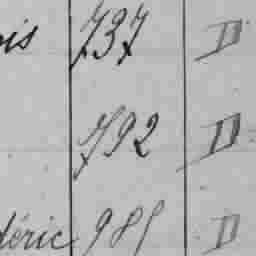 ois 737 D
792 D
déric 985 D